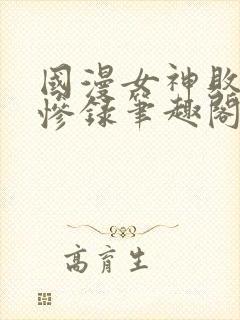 國漫女神敗
慘錄筆趣閣
高育生